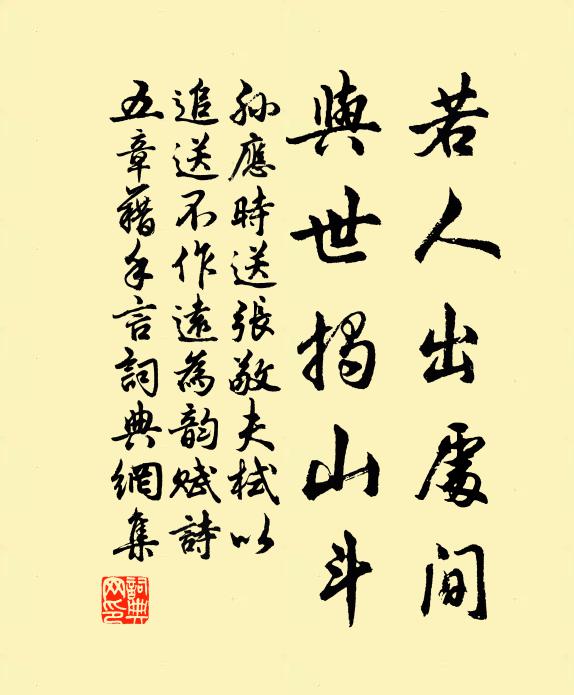 若人出處間
與世揭山斗
孫應時送張敬夫栻以
追送不作遠為韵賦詩
五章藉手言詞典網集
詞典网印